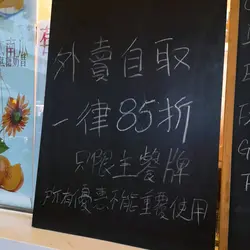 外賣自取
一律85折
只限主餐牌
所有優惠不能重疊使用